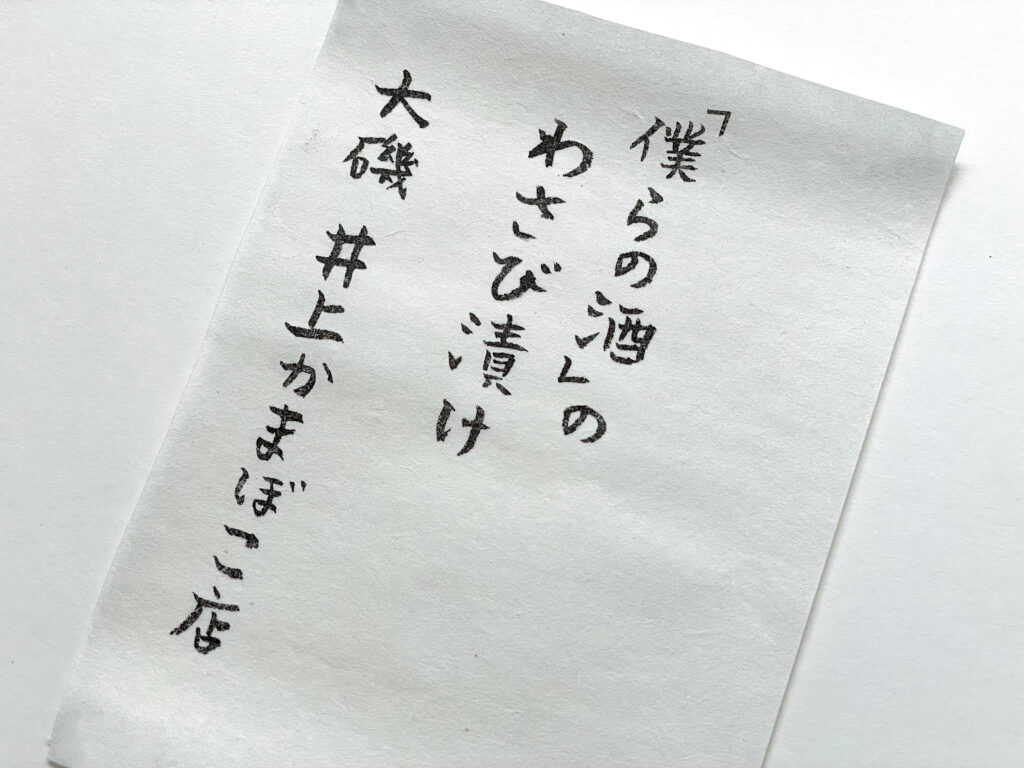 「僕らの酒」の
わさび漬け
大磯 井上かまぼこ店